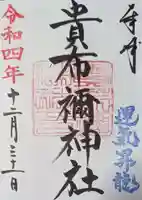 奉拝
貴布禰神社
令和四年
十二月三十一日
運気昇龍